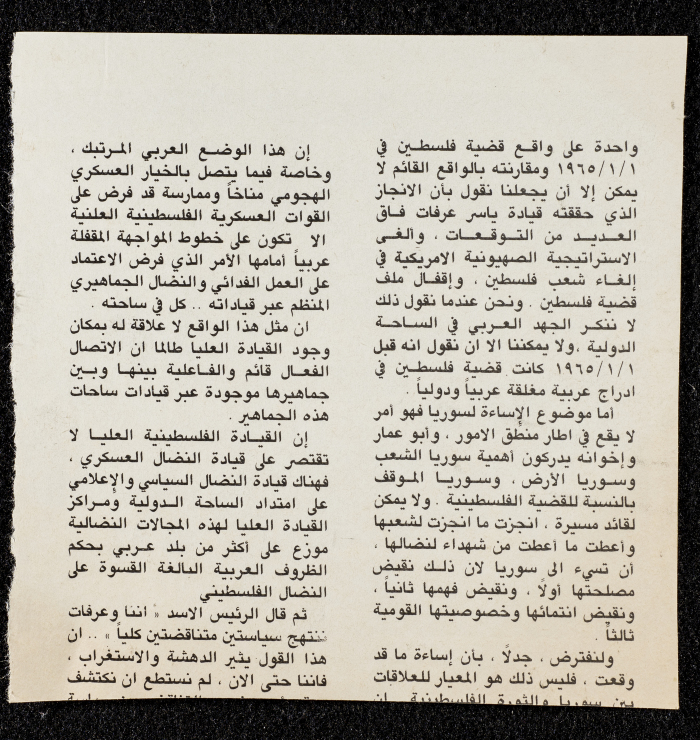 واحدة على واقع قضية فلسطين في
١٩٦٥/١/١ ومقارنته بالواقع القائم لا
يمكن إلا أن يجعلنا نقول بأن الانجاز
الذي حققته قيادة ياسر عرفات فاق
العديد من التوقعات ، وألغى
الاستراتيجية الصهيونية الامريكية في
إلغاء شعب فلسطين ، وإقفال ملف
قضية فلسطين . ونحن عندما نقول ذلك
لا ننكر الجهد العربي في الساحة
الدولية ،ولا يمكننا الا ان نقول انه قبل
١٩٦٥/١/١ كانت قضية فلسطين في
ادراج عربية مغلقة عربياً ودولياً .
أما موضوع الإساءة لسوريا فهو أمر
لا يقع في اطار منطق الامور ، وأبو عمار
وإخوانه يدركون أهمية سوريا الشعب
وسوريا الأرض ، وسوريا الموقف
بالنسبة للقضية الفلسطينية . ولا يمكن
لقائد مسيرة ، انجزت ما انجزت لشعبها
وأعطت ما أعطت من شهداء لنضالها ،
أن تسيء الى سوريا لان ذلك نقيض
مصلحتها أولاً ، ونقيض فهمها ثانياً ،
ونقيض انتمائها وخصوصيتها القومية
ثالثاً .
ولنفترض ، جدلاً ، بأن إساءة ما قد
وقعت ، فليس ذلك هو المعيار للعلاقات
بين سوريا والثورة الفلسطينية . ان
إن هذا الوضع العربي المرتبك ،
وخاصة فيما يتصل بالخيار العسكري
الهجومي مناخاً وممارسة قد فرض على
القوات العسكرية الفلسطينية العلنية
الا تكون على خطوط المواجهة المقفلة
عربياً أمامها الأمر الذي فرض الاعتماد
على العمل الفدائي والنضال الجماهيري
المنظم عبر قياداته .. كل في ساحته .
ان مثل هذا الواقع لا علاقة له بمكان
وجود القيادة العليا طالما ان الاتصال
الفعال قائم والفاعلية بينها وبين
جماهيرها موجودة عبر قيادات ساحات
هذه الجماهير .
إن القيادة الفلسطينية العليا لا
تقتصر على قيادة النضال العسكري ،
فهناك قيادة النضال السياسي والإعلامي
على امتداد الساحة الدولية ومراكز
القيادة العليا لهذه المجالات النضالية
موزع على أكثر من بلد عربي بحكم
الظروف العربية البالغة القسوة على
النضال الفلسطيني
ثم قال الرئيس الاسد « أننا وعرفات
ننتهج سياستين متناقضتين كلياً » .. ان
هذا القول يثير الدهشة والاستغراب ،
فاننا حتى الان ، لم نستطع ان نكتشف